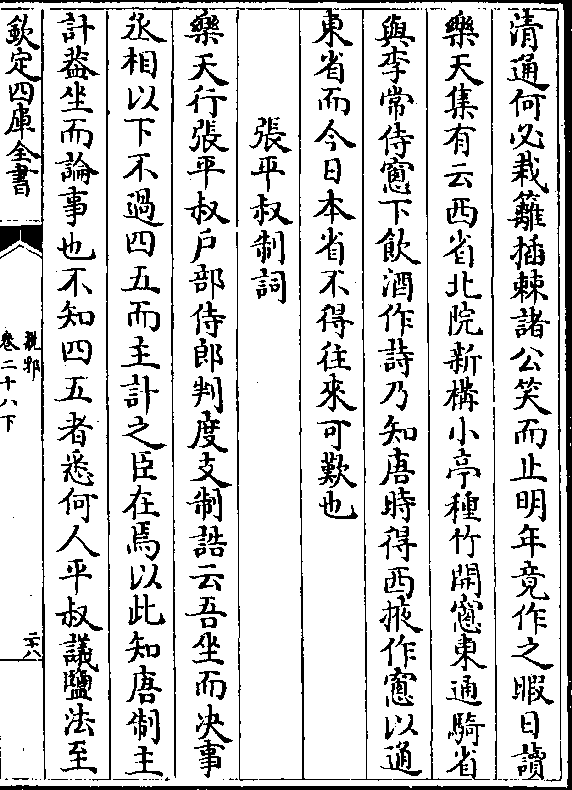 清通何必栽籬插棘諸公笑而止明年竟作之暇日讀
樂天集有云西省北院新構小亭種竹開窓東通騎省
與李常侍窓下飲酒作詩乃知唐時得西掖作窓以通
東省而今日本省不得往來可歎也
張平叔制詞
樂天行張平叔戶部侍郎判度支制誥云吾坐而决事
丞相以下不過四五而主計之臣在焉以此知唐制主
計葢坐而論事也不知四五者悉何人平叔議鹽法至
欽定四庫全書
說郛
卷二十八下
二六